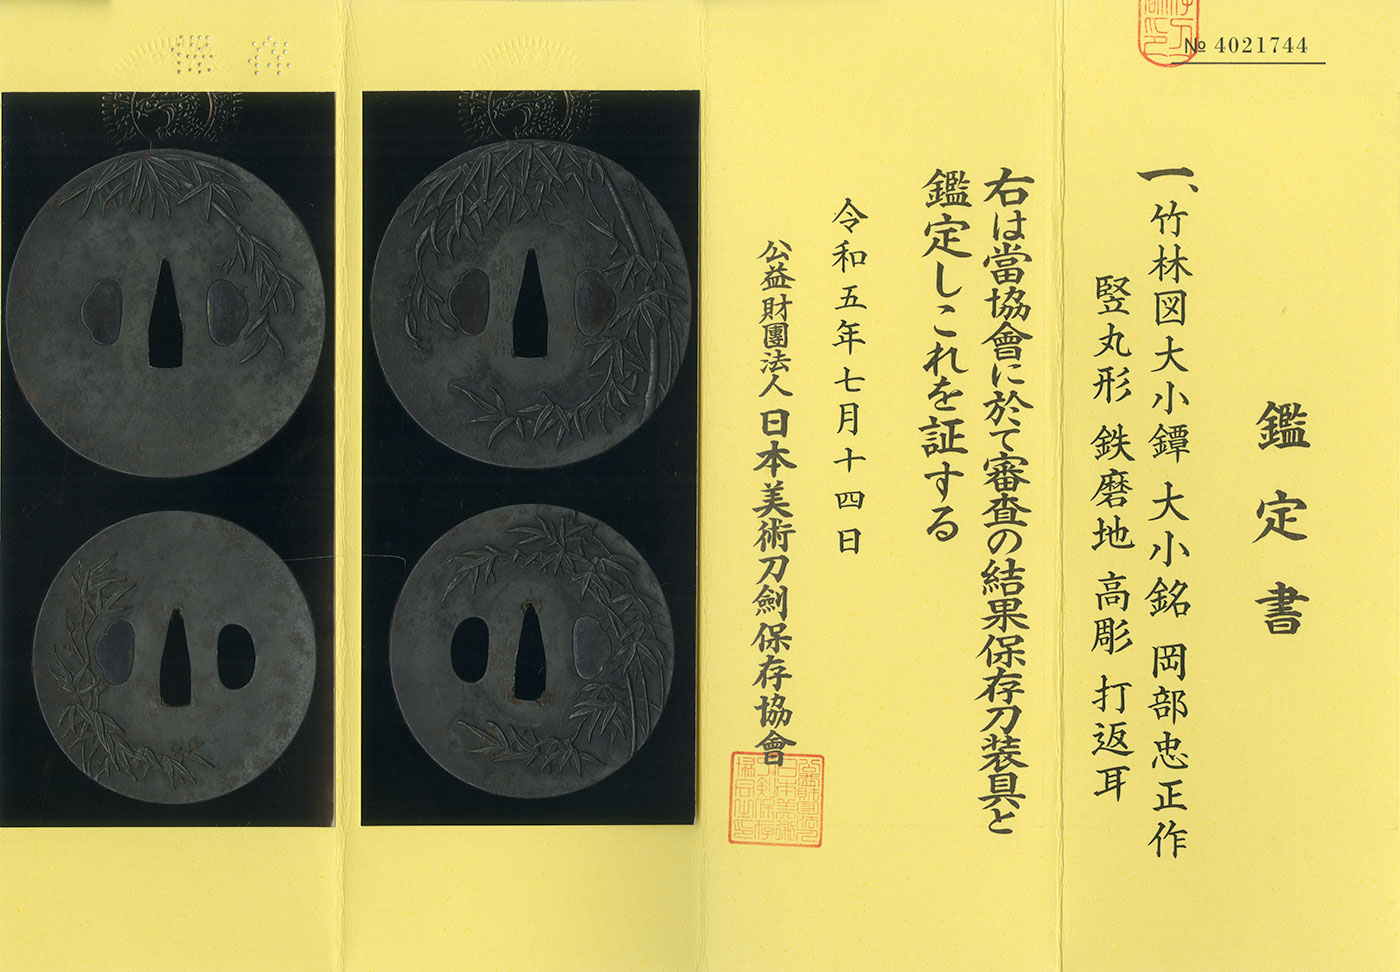 № 4021744
鑑定書
一、竹林図大小鐔 大小銘 岡部忠正作
竪丸形 鉄磨地 高彫 打返耳
右は當協會に於て審査の結果保存刀装具と
鑑定しこれを証する
令和五年七月十四日
公益財團法人 日本美術刀劍保存協會
保存